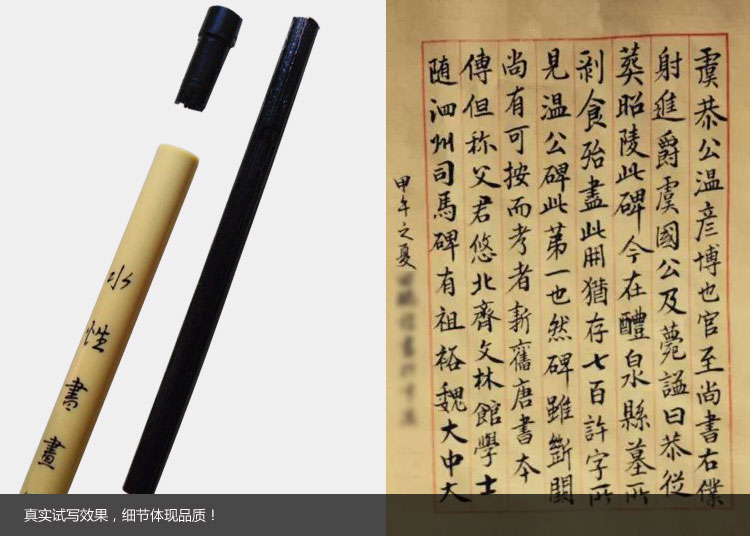 水性書畫
虞恭公温彦博也官至尚書右僕
射進爵虞國公及薨謚曰恭從
葬昭陵此碑今在醴泉縣墓所
剥食殆盡此冊猶存七百許字所
見温公碑此第一也然碑雖斷闕
尚有可按而考者新舊唐書本
傳但称父君悠北齊文林館學士
随泗州司馬碑有祖裕魏大中大
甲午之夏
真实试写效果，细节体现品质！